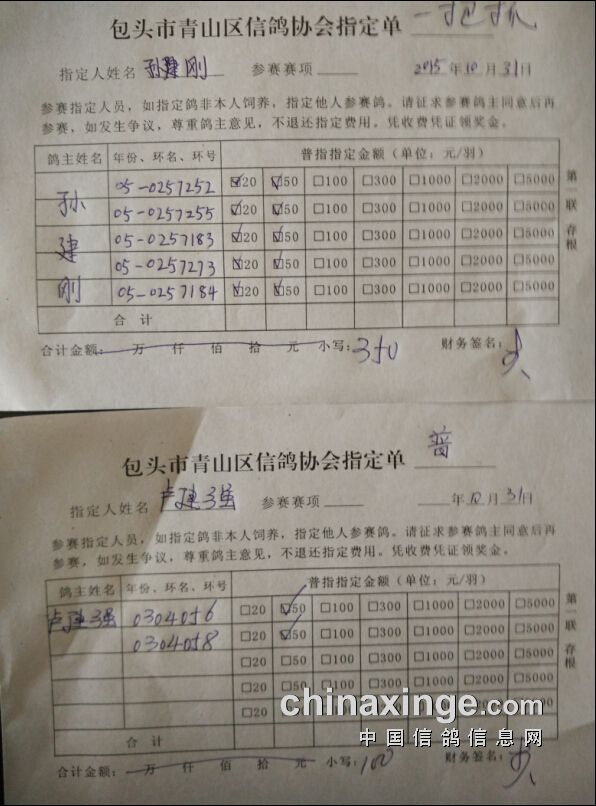 包头市青山区信鸽协会指定单 一把抓
指定人姓名 孙建刚 参赛赛项 2015年10月31日
参赛指定人员，如指定鸽非本人饲养，指定他人参赛鸽。请征求参赛鸽主同意后再
参赛，如发生争议，尊重鸽主意见，不退还指定费用。凭收费凭证领奖金。
鸽主姓名 年份、环名、环号 普指指定金额（单位：元/羽）
孙建刚
05-0257252 ☑20 ☑50 □100 □300 □1000 □2000 □5000
05-0257255 ☑20 ☑50 □100 □300 □1000 □2000 □5000
05-0257183 ☑20 ☑50 □100 □300 □1000 □2000 □5000
05-0257273 ☑20 ☑50 □100 □300 □1000 □2000 □5000
05-0257184 ☑20 ☑50 □100 □300 □1000 □2000 □5000
合 计
第一联 存根
合计金额： 万 仟 佰 拾 元 小写：350 财务签名：
包头市青山区信鸽协会指定单 普
指定人姓名 卢建强 参赛赛项 年10月31日
参赛指定人员，如指定鸽非本人饲养，指定他人参赛鸽。请征求参赛鸽主同意后再
参赛，如发生争议，尊重鸽主意见，不退还指定费用。凭收费凭证领奖金。
鸽主姓名 年份、环名、环号 普指指定金额（单位：元/羽）
卢建强 0304056 □20 ☑50 □100 □300 □1000 □2000 □5000
0304058 □20 ☑50 □100 □300 □1000 □2000 □5000
□20 □50 □100 □300 □1000 □2000 □5000
□20 □50 □100 □300 □1000 □2000 □5000
□20
合 计
第一联 存根
chinaxinge.com
中国信鸽信息网
合计金额： 万 仟 佰 拾 元 小写：100 财务签名：